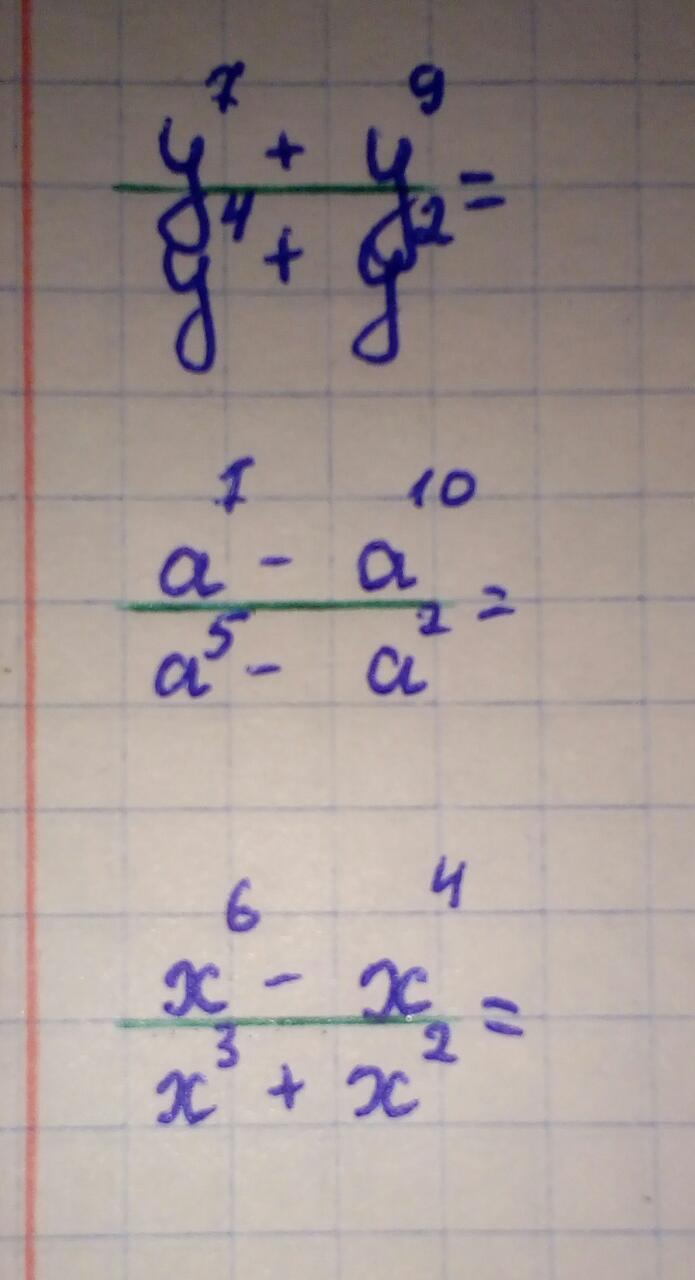 y⁷ + y⁹ =
y⁴ + y²
a⁷ - a¹⁰ =
a⁵ - a²
x⁶ - x⁴ =
x³ + x²